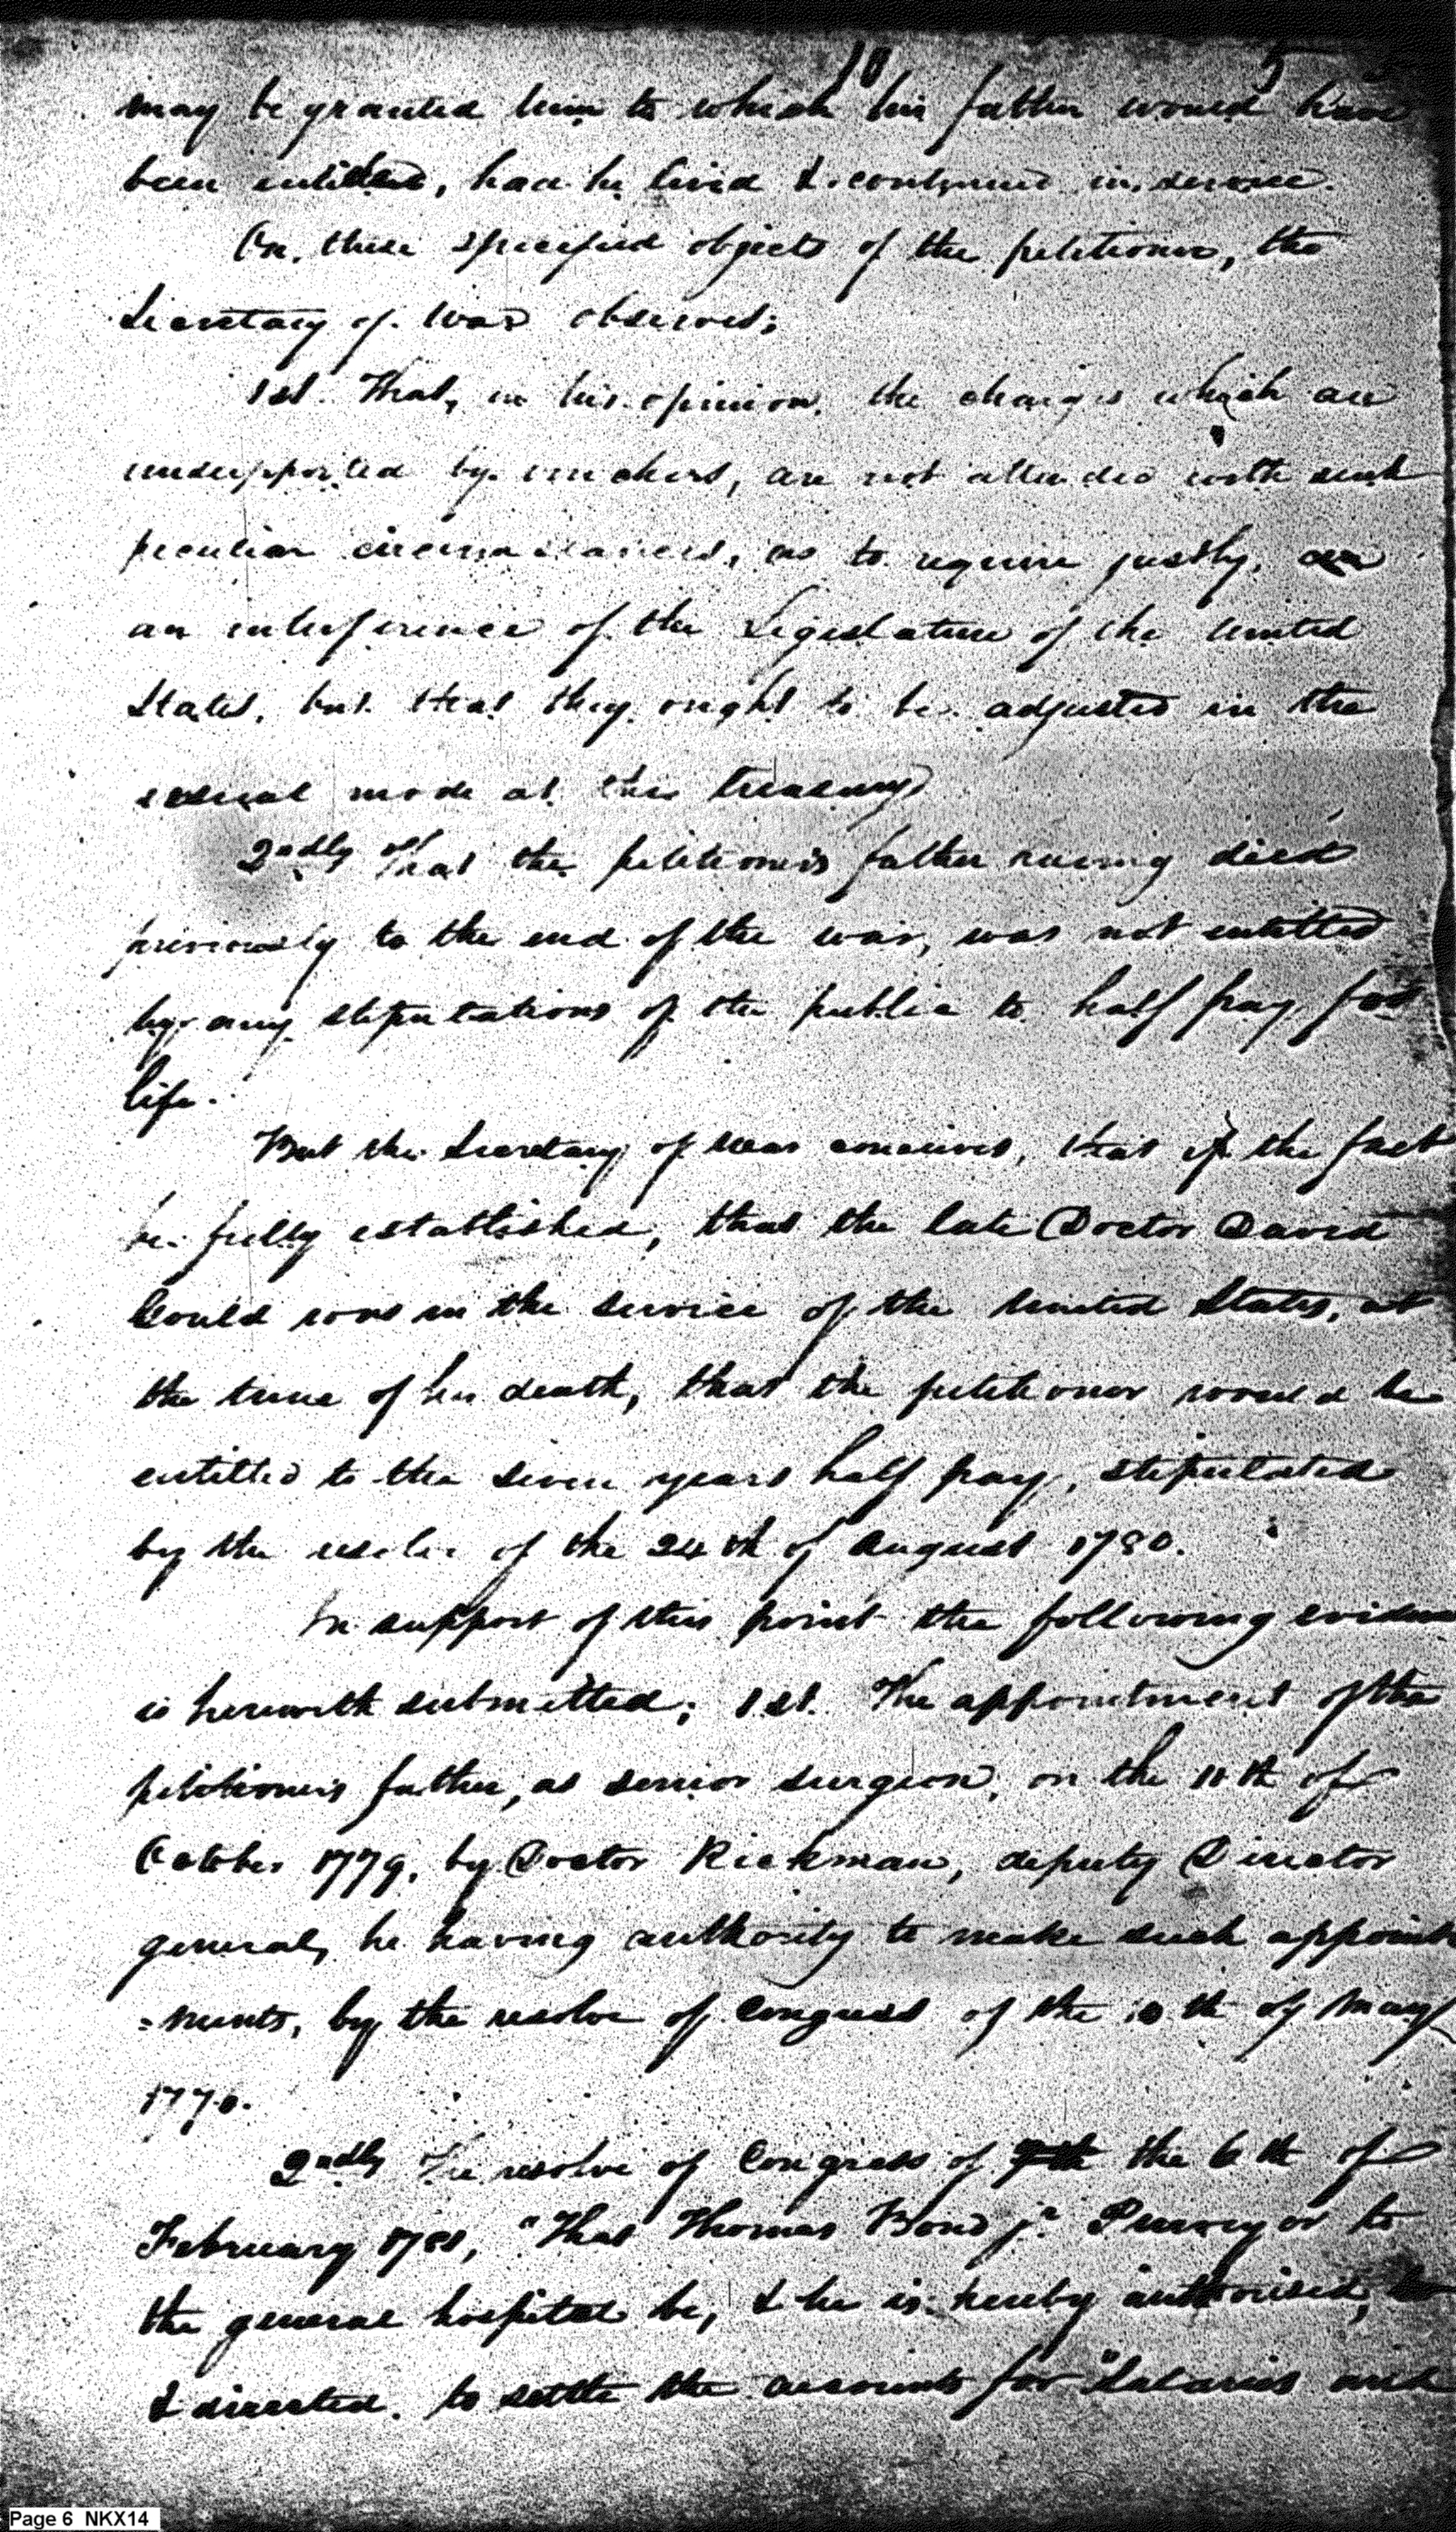 10 5
may be granted him to which his father would have
been entitled, had he lived & continued in service.
On these specified objects of the petitioner, the
Secretary of War observes;
1st. That, in his opinion, the charges which are
unsupported by vouchers, are not attended with such
peculiar circumstances, as to require justly,
an interference of the Legislature of the United
States, but that they ought to be adjusted in the
usual mode at the treasury
2ndly That the petitioner's father having died
previously to the end of the war, was not entitled
by any stipulations of the public to half pay for
life.
But the Secretary of War conceives, that if the fact
be fully established, that the late Doctor David
Gould was in the service of the United States, at
the time of his death, that the petitioner would be
entitled to the seven years half pay, stipulated
by the resolve of the 24th of August 1780.
In support of this point the following eviden
is herewith submitted; 1st. The appointment of the
petitioner's father, as senior surgeon, on the 11th of
October 1779, by Doctor Rickman, deputy Director
general, he having authority to make such appoint
=ments, by the resolve of Congress of the 10th of May
177
2ndly The resolve of Congress of 7th the 6th of
February 1781, "That Thomas Bond jr. Purveyor to
the general hospital be, & he is hereby authorised,
& directed to settle the accounts for "Salaries and
Page 6 NKX14